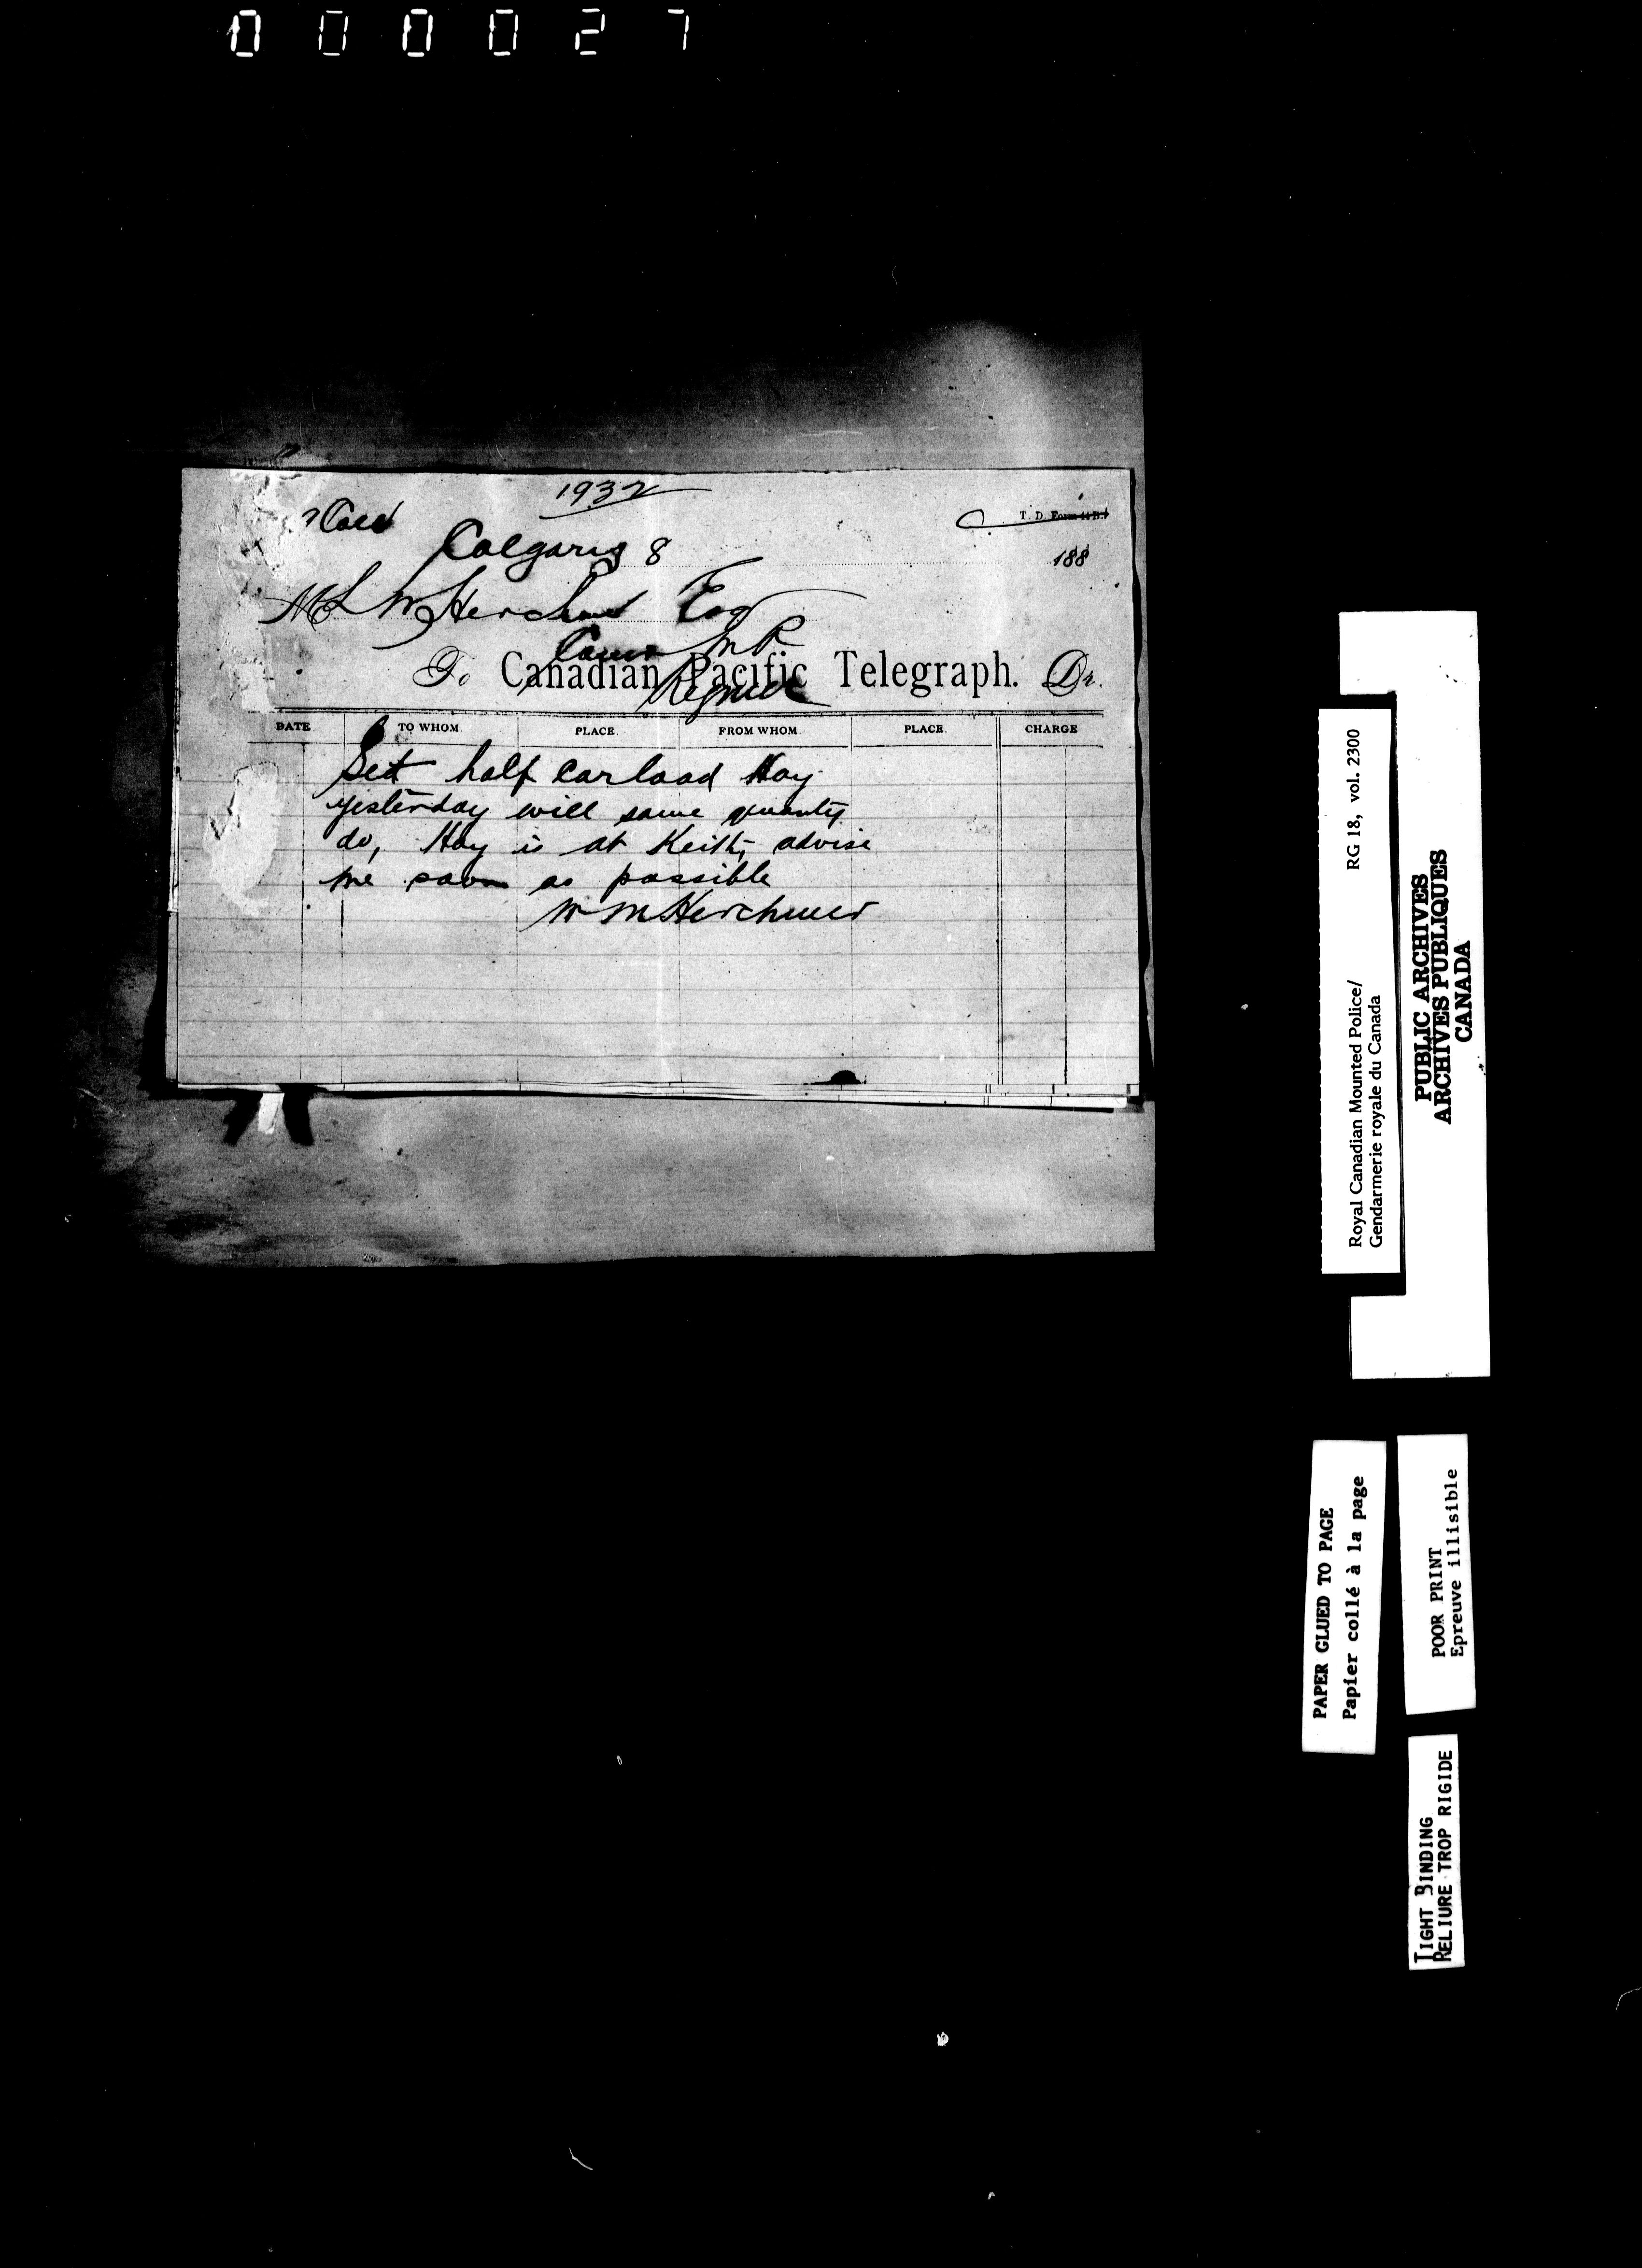 000027
1932
T. D. Form 11 B.
Calgary 8
188
L W Herchmer Esq
Comr M P
To Canadian Pacific Telegraph. Dr.
Regina
DATE TO WHOM. PLACE. FROM WHOM. PLACE. CHARGE
half carload Hay
yesterday will same quantity
do, Hay is at Keith, advise
me soon as possible
W M Herchmer
Royal Canadian Mounted Police/ RG 18, vol. 2300
Gendarmerie royale du Canada
PUBLIC ARCHIVES
ARCHIVES PUBLIQUES
CANADA
PAPER GLUED TO PAGE
Papier collé à la page
POOR PRINT
Epreuve illisible
TIGHT BINDING
RELIURE TROP RIGIDE